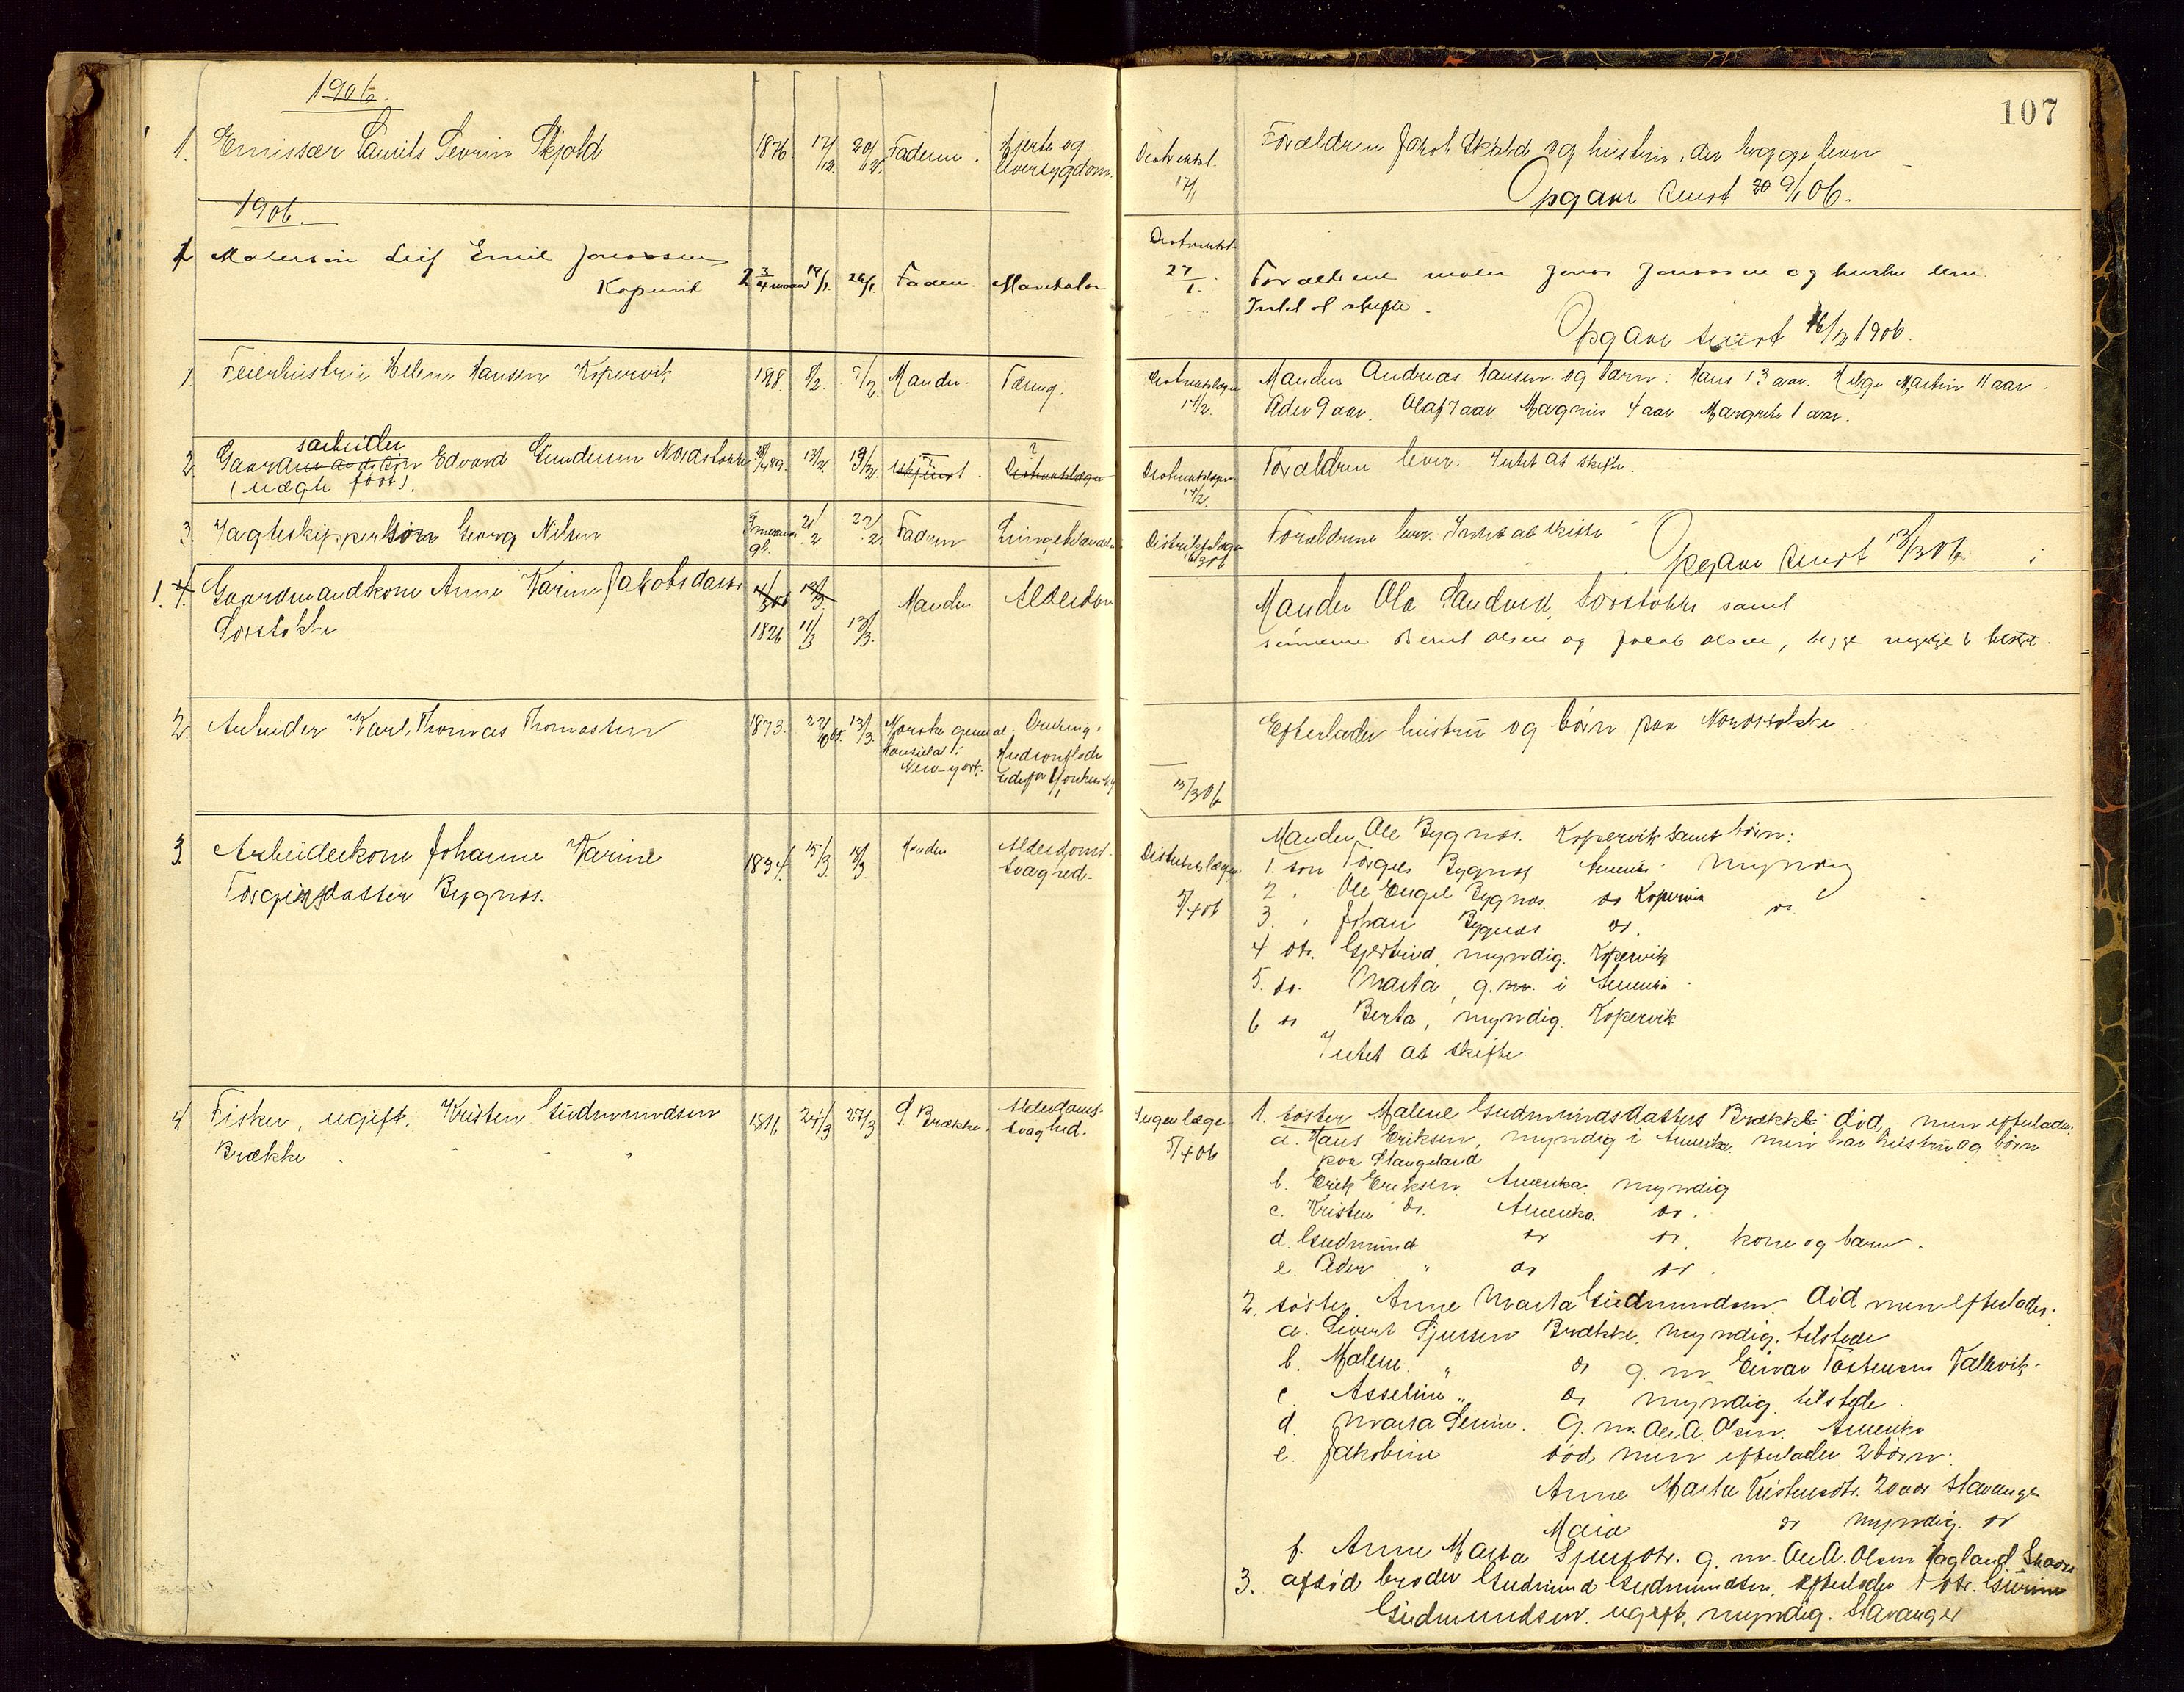 107
1906.
1. Emissær Laurits Sevrin Skjold 1876. 17/12. 20/12. Faderen. Hjerte og
leversygdom.
Distriktsl.
17/1
Forældrene Jakob Skjold og hustru, der begge lever
Opgave sendt 20 9/1 06.
1906.
1 Malersøn Leif Emil Jonassen
Kopervik 2 3/4 maan 19/1. 26/1. Faderen.
27/1.
Forældrene maler Jonas Jonassen og hustru lever.
Intet at skifte.
Opgave sendt 16/2 1906.
1. Feierhustru Helene Hansen Kopervik 1868. 8/2. 9/2. Manden. Tæring.
Distriktslægen
14/2.
Manden Andreas Hansen og barn: Hans 13 aar. Helge Martin 11 aar.
Peder 9 aar. Olaf 7 aar. Magnus 4 aar Margrete 1 aar.
2. Gaardsarbeider Edvard Gundersen Nordstokke 1889. 13/2. 19/2. ?
(uægte født).
Distriktslægen
14/2.
Forældrene lever. Intet at skifte.
3. Jagteskippersøn Georg Nilsen 3 maaneder gl. 21/2. 22/2. Faderen Lungebetændelse
Distriktslægen
Forældrene lever. Intet at skifte
Opgave sendt 13/3 06.
1. 4. Gaardmandkone Anne Karine Jakobsdatter
Sørstokke 1826 11/3 13/3. Manden Alderdom
Manden Ole Sandved, Sørstokke samt
sønnerne Bernt Olsen og Jakob Olsen, begge myndige & tilstede.
2. Arbeider Karl Thomas Thomassen 1873. 13/3. Norske general Drukning i
konsulat i Hudsonfloden
New-york. udenfor Yonkers N.Y.
13/3 06
Efterlader hustru og børn paa Nordstokke.
3. Arbeiderkone Johanne Karine 1834. 15/3 18/3. Manden Alderdoms-
Torgersdatter Bygnes. svaghed.
Distriktslægen
5/4 06
Manden Ole Bygnes. Kopervik samt børn:
1. søn Torgels Bygnes Amerika Myndig
2 " Ole Engel Bygnes. do Kopervik do
3. " Johan Bygnes do.
4 dtr. Gjertrud, myndig. Kopervik
5. do. Marta, g.m. i Amerika.
6 do Berta, myndig. Kopervik
Intet at skifte.
4. Fisker, ugift. Kristen Gudmundsen 1816 24/3 27/3 P. Brække. Alderdoms-
Brække svaghed.
Ingen læge.
5/4 06
1. søster Malene Gudmundsdatter Brække død, men efterlader.
a. Hans Eriksen, myndig i Amerika. men har hustru og børn
paa Stangeland
b. Erik Eriksen Amerika. myndig
c. Kristen do. Amerika. do.
d. Gudmund do do. kone og barn.
e. Peder " do do.
2. søster. Anne Marta Gudmundsen død men efterlader.
a. Sivert Sjursen Brække, myndig. tilstede
b. Malene " do g. m. Einar Tostensen Vallevik.
c. Asseline " do myndig tilstede.
d. Marta Serine. g. m. Ole A. Olsen. Amerika
e. Jakobine død men efterlader 2 børn:
Anne Marta Kristensdtr. 20 aar Stavanger
Maria do myndig. do
f. Anne Marta Sjursdtr. g. m. Ole A. Olsen Hagland Skaare
3. afdød broder Gudmund Gudmundsen, efterlader 1 dtr. Gurine
Gudmundsen. ugift, myndig. Stavanger